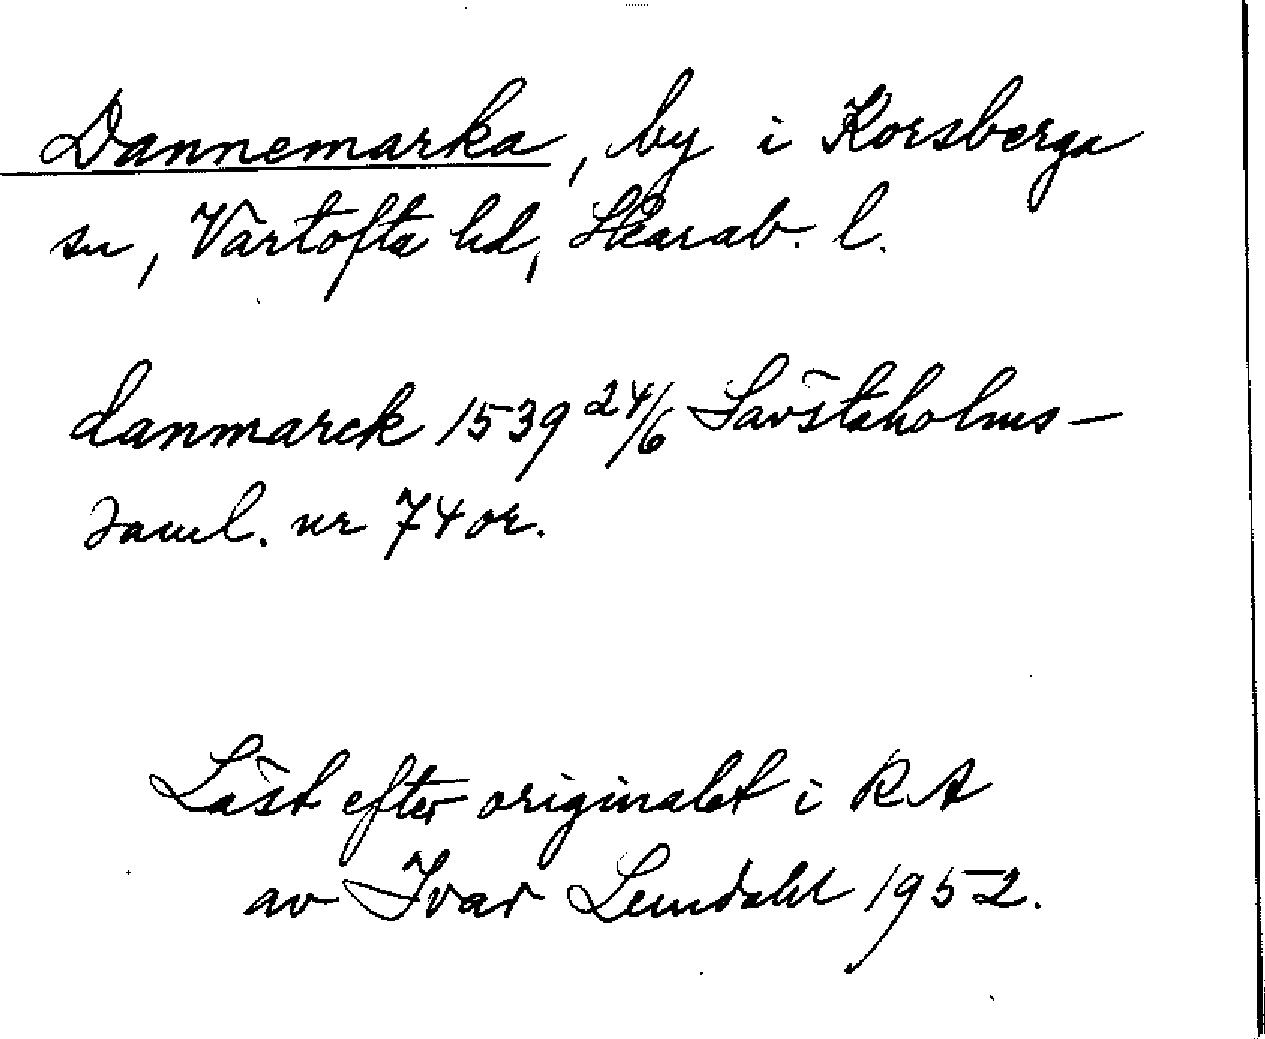 Dannemarka, by i Korsberga
sn, Vartofta hd, Skarab. l.
danmarck 1539 24/6 Sävstaholms-
saml. nr 74 or.
Läst efter originalet i RA
av Ivar Lundahl 1952.